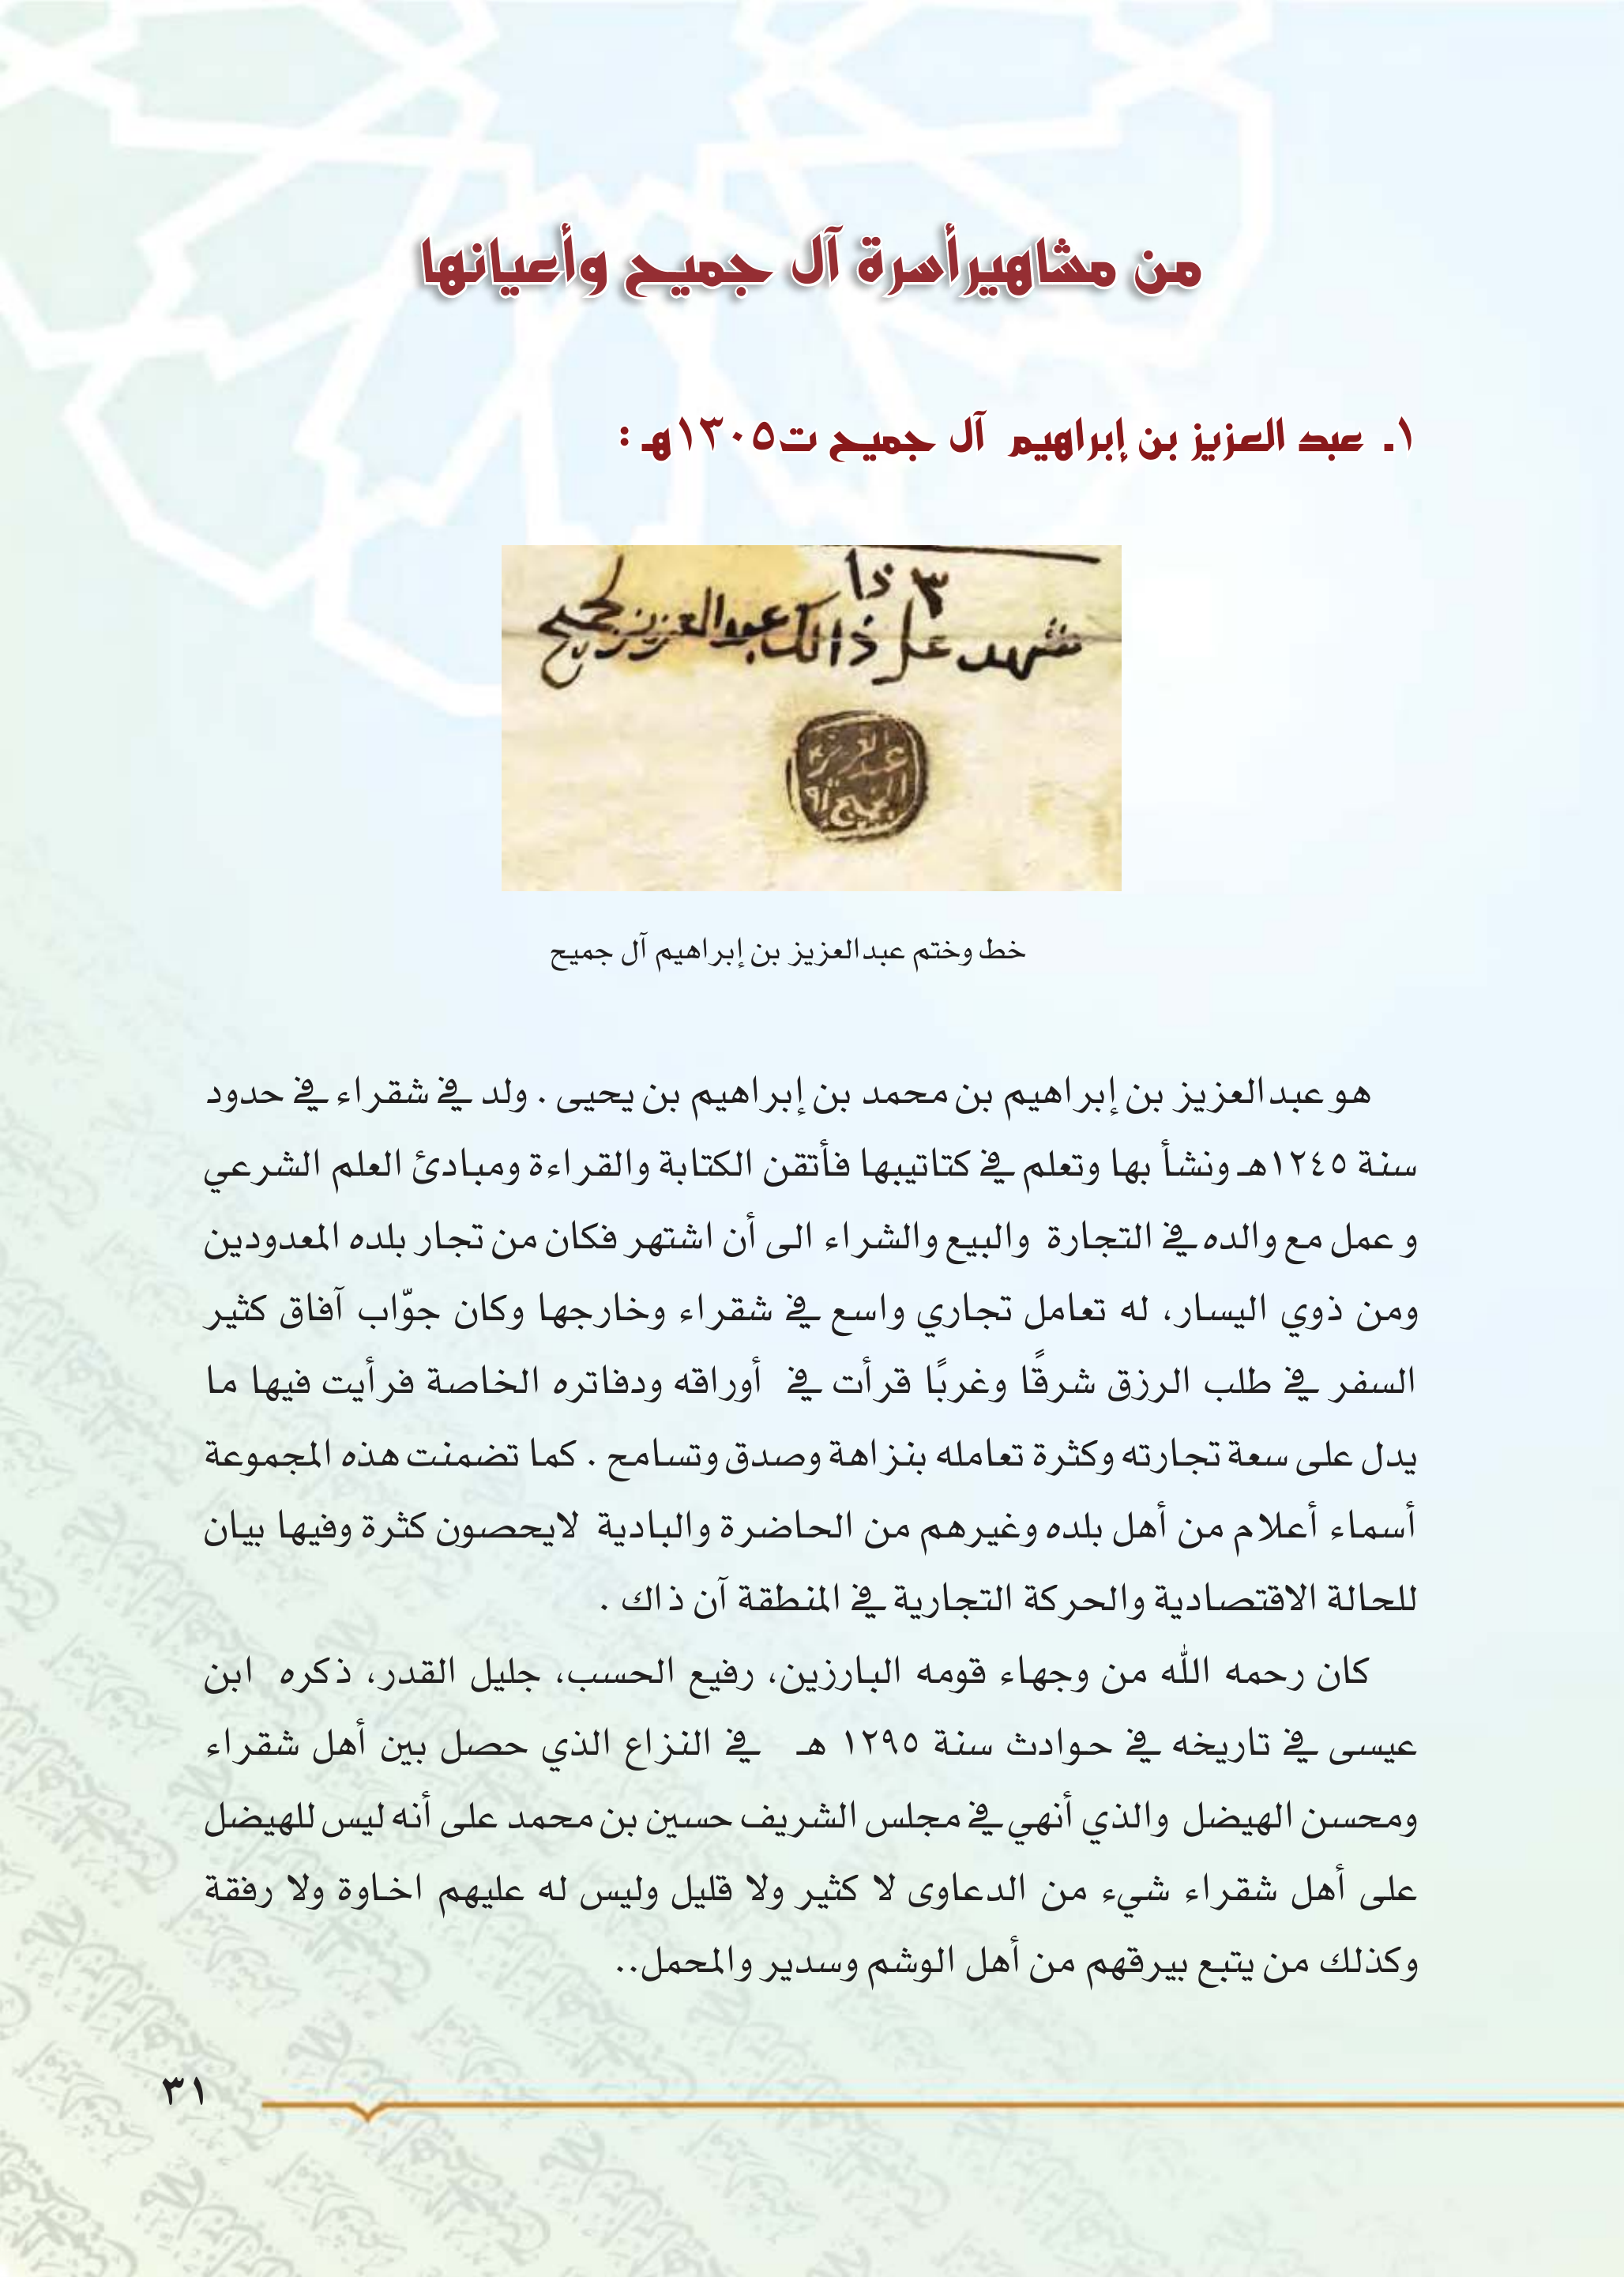 من مشاهير أسرة آل جميح وأعيانها
١. عبد العزيز بن إبراهيم آل جميح ت١٣٠٥هـ :
٣ ذا
شهد على ذالك عبد العزيز لجميح
خط وختم عبدالعزيز بن إبراهيم آل جميح
هو عبدالعزيز بن إبراهيم بن محمد بن إبراهيم بن يحيى . ولد في شقراء في حدود
سنة ١٢٤٥هـ ونشأ بها وتعلم في كتاتيبها فأتقن الكتابة والقراءة ومبادئ العلم الشرعي
و عمل مع والده في التجارة والبيع والشراء الى أن اشتهر فكان من تجار بلده المعدودين
ومن ذوي اليسار، له تعامل تجاري واسع في شقراء وخارجها وكان جوّاب آفاق كثير
السفر في طلب الرزق شرقًا وغربًا قرأت في أوراقه ودفاتره الخاصة فرأيت فيها ما
يدل على سعة تجارته وكثرة تعامله بنزاهة وصدق وتسامح . كما تضمنت هذه المجموعة
أسماء أعلام من أهل بلده وغيرهم من الحاضرة والبادية لايحصون كثرة وفيها بيان
للحالة الاقتصادية والحركة التجارية في المنطقة آن ذاك .
كان رحمه الله من وجهاء قومه البارزين، رفيع الحسب، جليل القدر، ذكره ابن
عيسى في تاريخه في حوادث سنة ١٢٩٥ هـ في النزاع الذي حصل بين أهل شقراء
ومحسن الهيضل والذي أنهي في مجلس الشريف حسين بن محمد على أنه ليس للهيضل
على أهل شقراء شيء من الدعاوى لا كثير ولا قليل وليس له عليهم اخاوة ولا رفقة
وكذلك من يتبع بيرقهم من أهل الوشم وسدير والمحمل..
٣١